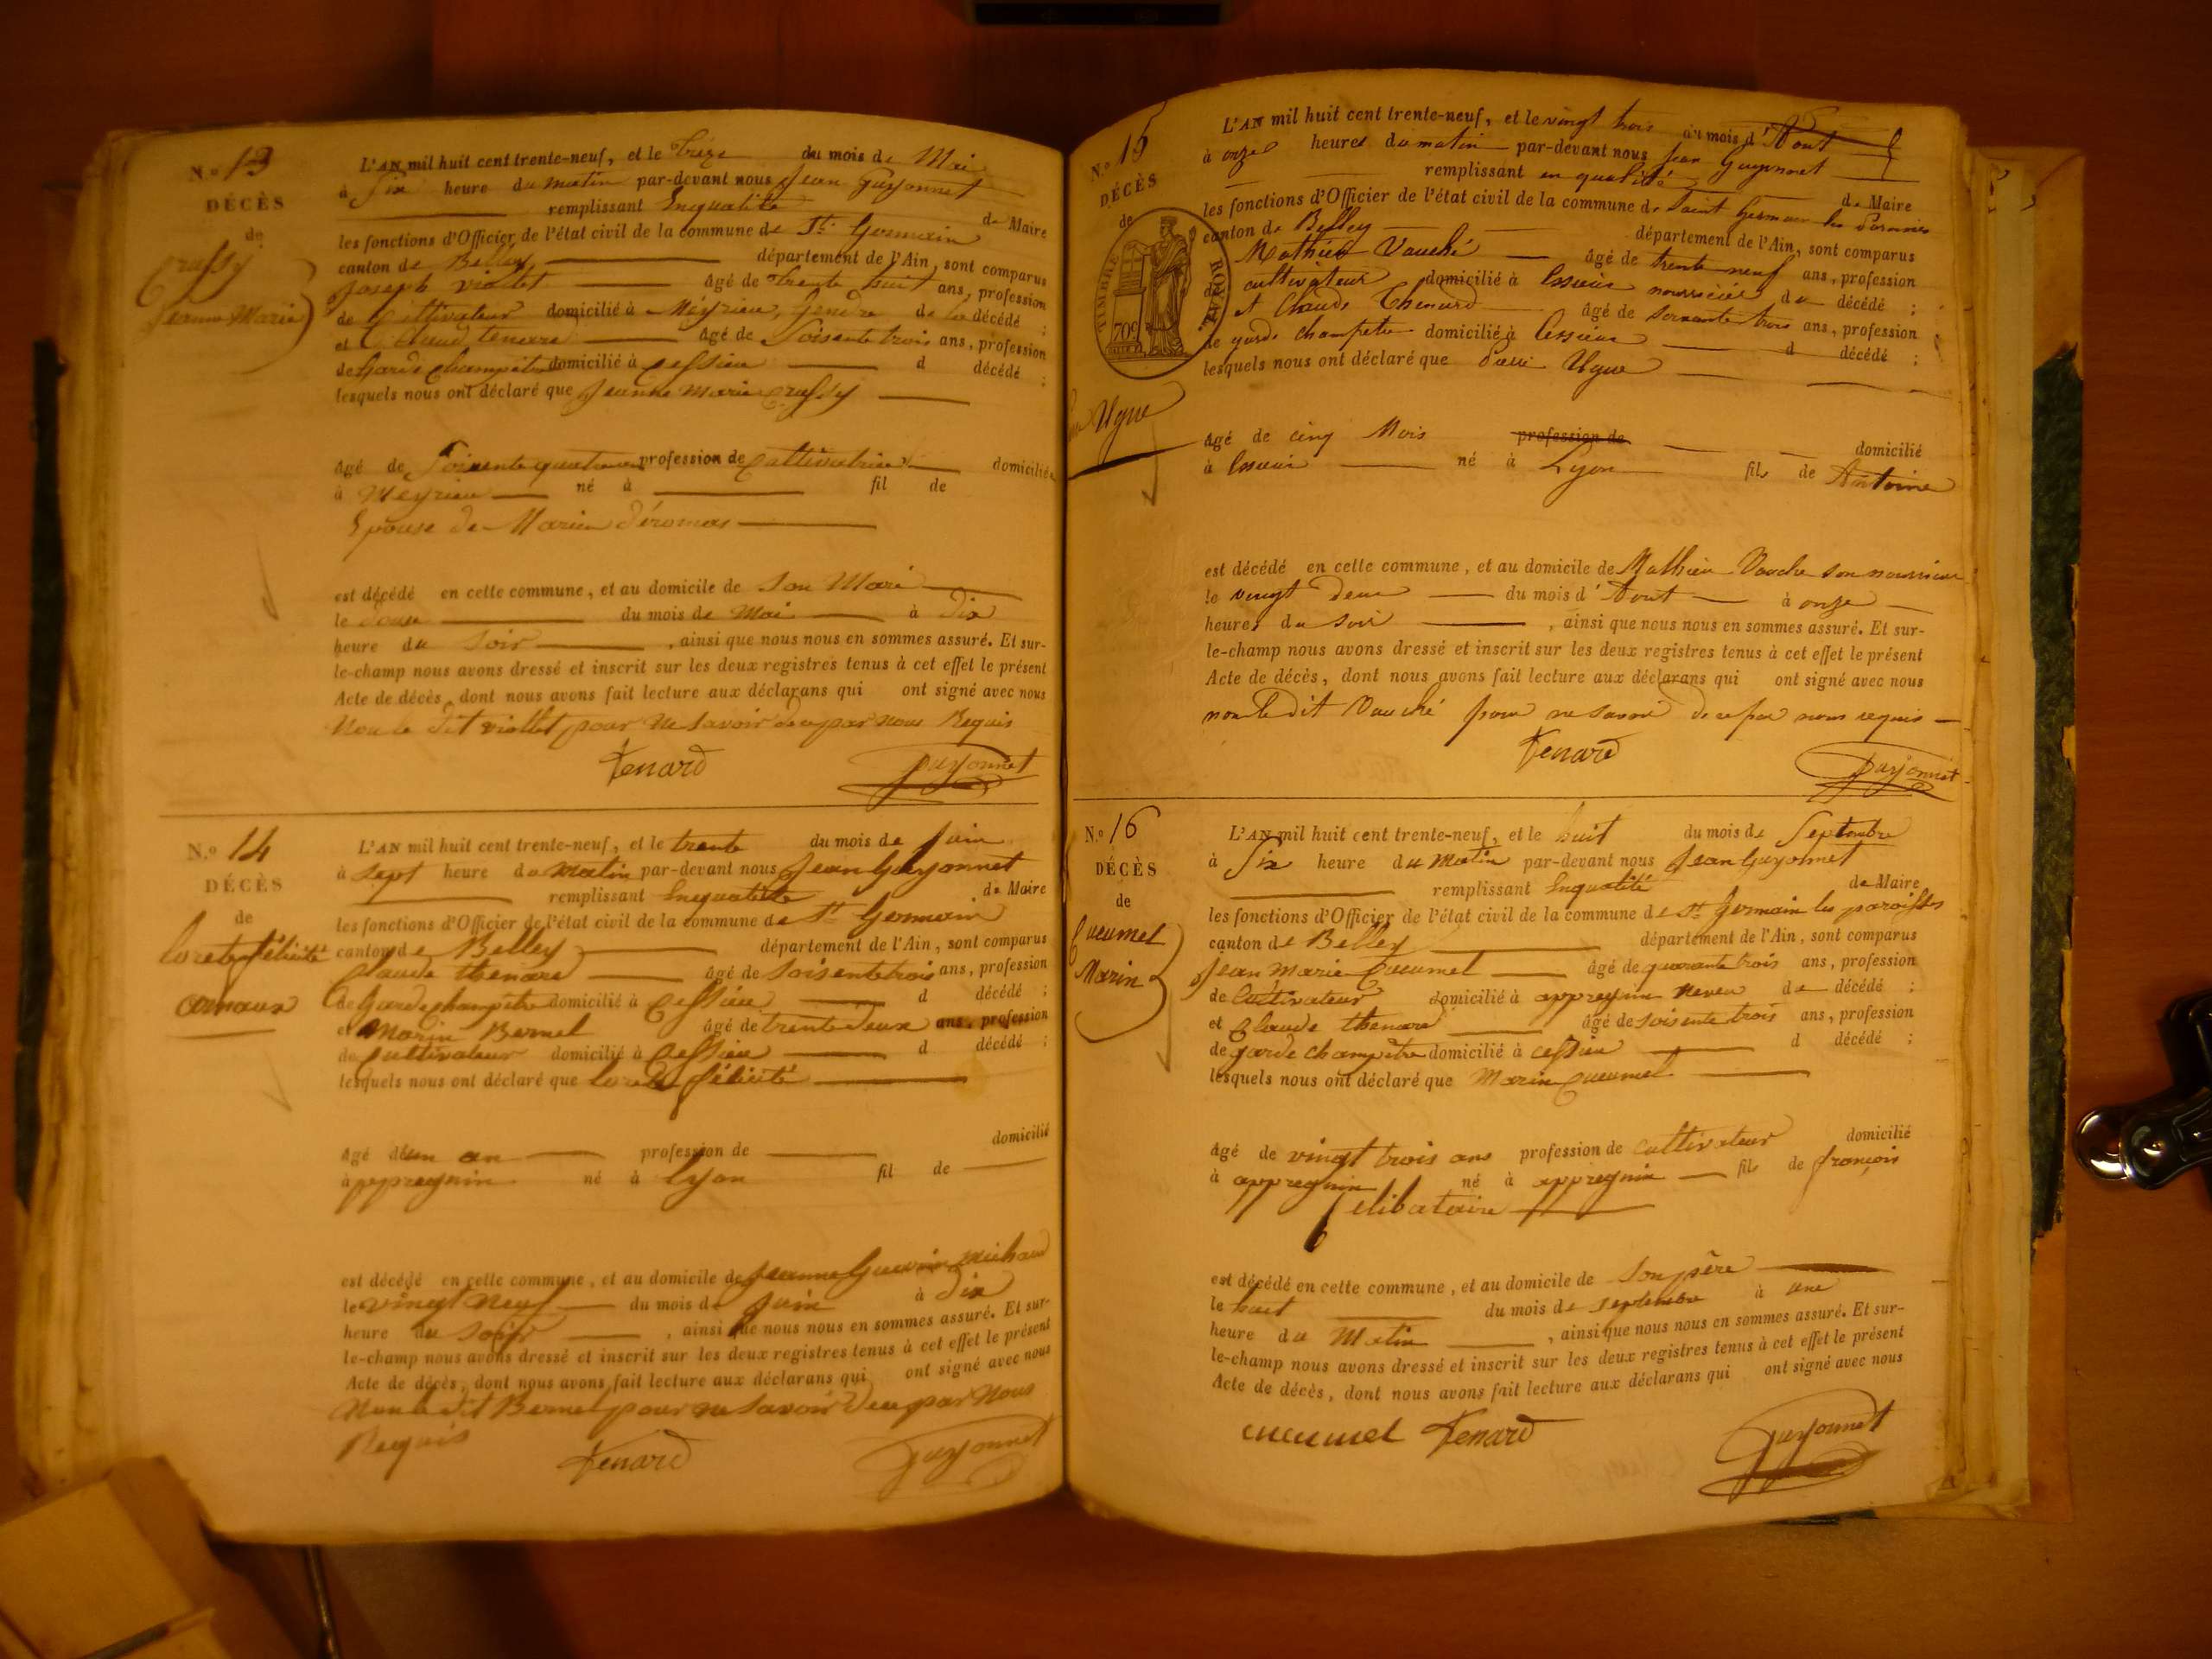 N.º 13
DÉCÈS
de
Crussy
Jeanne Marie
L'AN mil huit cent trente-neuf, et le treze du mois de Mai
à Six heure du matin par-devant nous Jean Guyonnet
remplissant Enqualité de Maire
les fonctions d'Officier de l'état civil de la commune de St. Germain
canton de Belley, département de l'Ain, sont comparus
Joseph viollet âgé de trente huit ans, profession
de Cultivateur domicilié à Meyrieu, Gendre de la décédé ;
et Claud tenard âgé de Soisente trois ans, profession
de Garde Champêtre domicilié à cessieu d décédé ;
lesquels nous ont déclaré que Jeanne Marie Crussy
âgé de Soixente quatre ans profession de Cultivatrice domiciliée
à Meyrieu né à fil de
Epouse de Marin déromas
est décédé en cette commune, et au domicile de Son Mari
le douse du mois de Mai à dix
heure du Soir , ainsi que nous nous en sommes assuré. Et sur-
le-champ nous avons dressé et inscrit sur les deux registres tenus à cet effet le présent
Acte de décès, dont nous avons fait lecture aux déclarans qui ont signé avec nous
Non le dit viollet pour ne Savoir de ce par nous Requis
Tenard Guyonnet
N.º 14
DÉCÈS
de
félicité
arnaux
L'AN mil huit cent trente-neuf, et le trente du mois de Juin
à Sept heure du Matin par-devant nous Jean Guyonnet
remplissant Enqualité de Maire
les fonctions d'Officier de l'état civil de la commune de St Germain
canton de Belley département de l'Ain, sont comparus
Claude thenard âgé de Soisente trois ans, profession
de Garde champêtre domicilié à Cessieu d décédé ;
et Marin Bernel âgé de trente deux ans, profession
de Cultivateur domicilié à Cessieu d décédé ;
lesquels nous ont déclaré que félicité
âgé d'un an profession de domicilié
à appregnin né à Lyon fil de
est décédé en cette commune, et au domicile de Jeanne Michaud
le vingt Neuf du mois de Juin à dix
heure du Soir , ainsi que nous nous en sommes assuré. Et sur-
le-champ nous avons dressé et inscrit sur les deux registres tenus à cet effet le présent
Acte de décès, dont nous avons fait lecture aux déclarans qui ont signé avec nous
Non le dit Bernel pour ne Savoir de ce par Nous
Requis
Tenard Guyonnet
N.º 15
DÉCÈS
de
TIMBRE ROYAL
Ugue
L'AN mil huit cent trente-neuf, et le vingt trois du mois d'Aout
à onze heures du matin par-devant nous Jean Guyonnet
remplissant en qualité de Maire
les fonctions d'Officier de l'état civil de la commune de Saint Germain les Paroisses
canton de Belley département de l'Ain, sont comparus
Mathieu Vauché âgé de trente neuf ans, profession
de cultivateur domicilié à Essieu nourricier du décédé ;
et Claude Thenard âgé de soixante trois ans, profession
de garde champetre domicilié à Cessieu d décédé ;
lesquels nous ont déclaré que Ugue
âgé de cinq Mois profession de domicilié
à Essieu né à Lyon fils de Antoine
est décédé en cette commune, et au domicile de Mathieu Vauche son nourricier
le vingt deux du mois d'Aout à onze
heures du soir , ainsi que nous nous en sommes assuré. Et sur-
le-champ nous avons dressé et inscrit sur les deux registres tenus à cet effet le présent
Acte de décès, dont nous avons fait lecture aux déclarans qui ont signé avec nous
non le dit Vauché pour ne savoir de ce par nous requis
Tenard Guyonnet
N.º 16
DÉCÈS
de
Cucumel
Marin
L'AN mil huit cent trente-neuf, et le huit du mois de Septembre
à Six heure du Matin par-devant nous Jean Guyonnet
remplissant Enqualité de Maire
les fonctions d'Officier de l'état civil de la commune de St. Germain les paroisses
canton de Belley département de l'Ain, sont comparus
Jean Marie Cucumel âgé de quarante trois ans, profession
de Cultivateur domicilié à appregnin neveu de décédé ;
et Claude thenard âgé de soisente trois ans, profession
de garde champêtre domicilié à cessieu d décédé ;
lesquels nous ont déclaré que Marin Cucumel
âgé de vingt trois ans profession de Cultivateur domicilié
à appregnin né à appregnin fils de françois
Celibataire
est décédé en cette commune, et au domicile de Son père
le huit du mois de septembre à une
heure du Matin , ainsi que nous nous en sommes assuré. Et sur-
le-champ nous avons dressé et inscrit sur les deux registres tenus à cet effet le présent
Acte de décès, dont nous avons fait lecture aux déclarans qui ont signé avec nous
cucumel Tenard Guyonnet